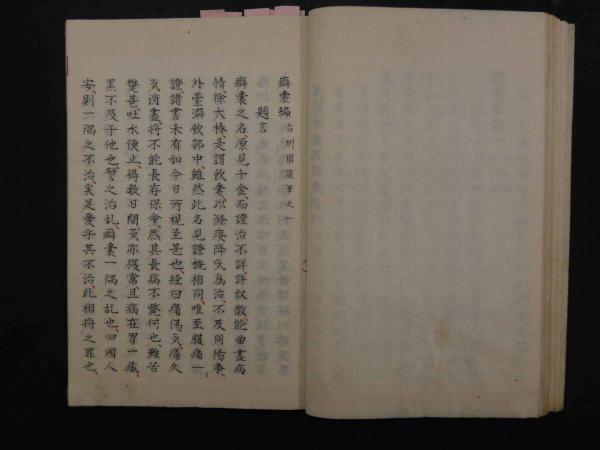 癖囊編
題言
癖囊之名、原見千金、而證治不詳、許叔微能曲盡病
情、徐大椿是謂飲囊、以滌痰降氣為治、不及開陽事、
外臺澼飲部中、雖然此名見證機相同、唯至腹痛一
證、諸書未有如今日所視至甚也、經曰痛傷氣、痛久
氣消盡、將不能長存保重、然其長病不斃何也、雖苦
楚甚、吐水便止、得數日間、氣亦復常、且病在胃一藏、
累不及于他也、譬之治亂、癖囊一隅之亂也、四國人
安、則一隅之不治、奚足憂乎、其不治、此相將之罪也、